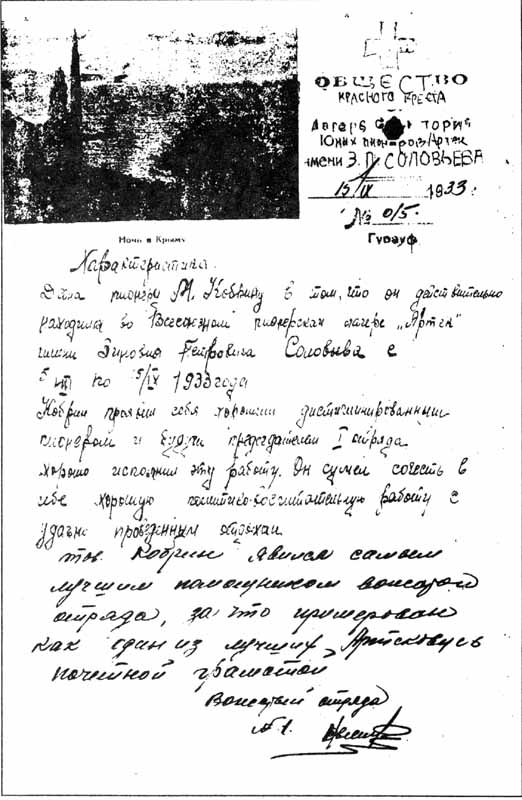 ОБЩЕСТВО
КРАСНОГО КРЕСТА
Лагерь
Юных пионеров Артек
имени З. П. СОЛОВЬЕВА
15/IX 1933 г.
№ 015
Ночь в Крыму
Гурзуф
Характеристика.
Дана пионеру М. Кобрину в том, что он действительно
находился во Всесоюзном пионерском лагере „Артек"
имени Зиновия Петровича Соловьева с
5/VIII по 5/IX 1933 года
Кобрин проявил себя хорошим дисциплинированным
пионером и будучи председателем I отряда
хорошо исполнил эту работу. Он сумел сочесть в
себе хорошую политико-воспитательную работу с
удачно проведенным отдыхом
тов. Кобрин явился самым
лучшим помощником вожатой
отряда, за что примерован
как один из лучших Артековцев
почетной грамотой
Вожатый отряда
№ 1.